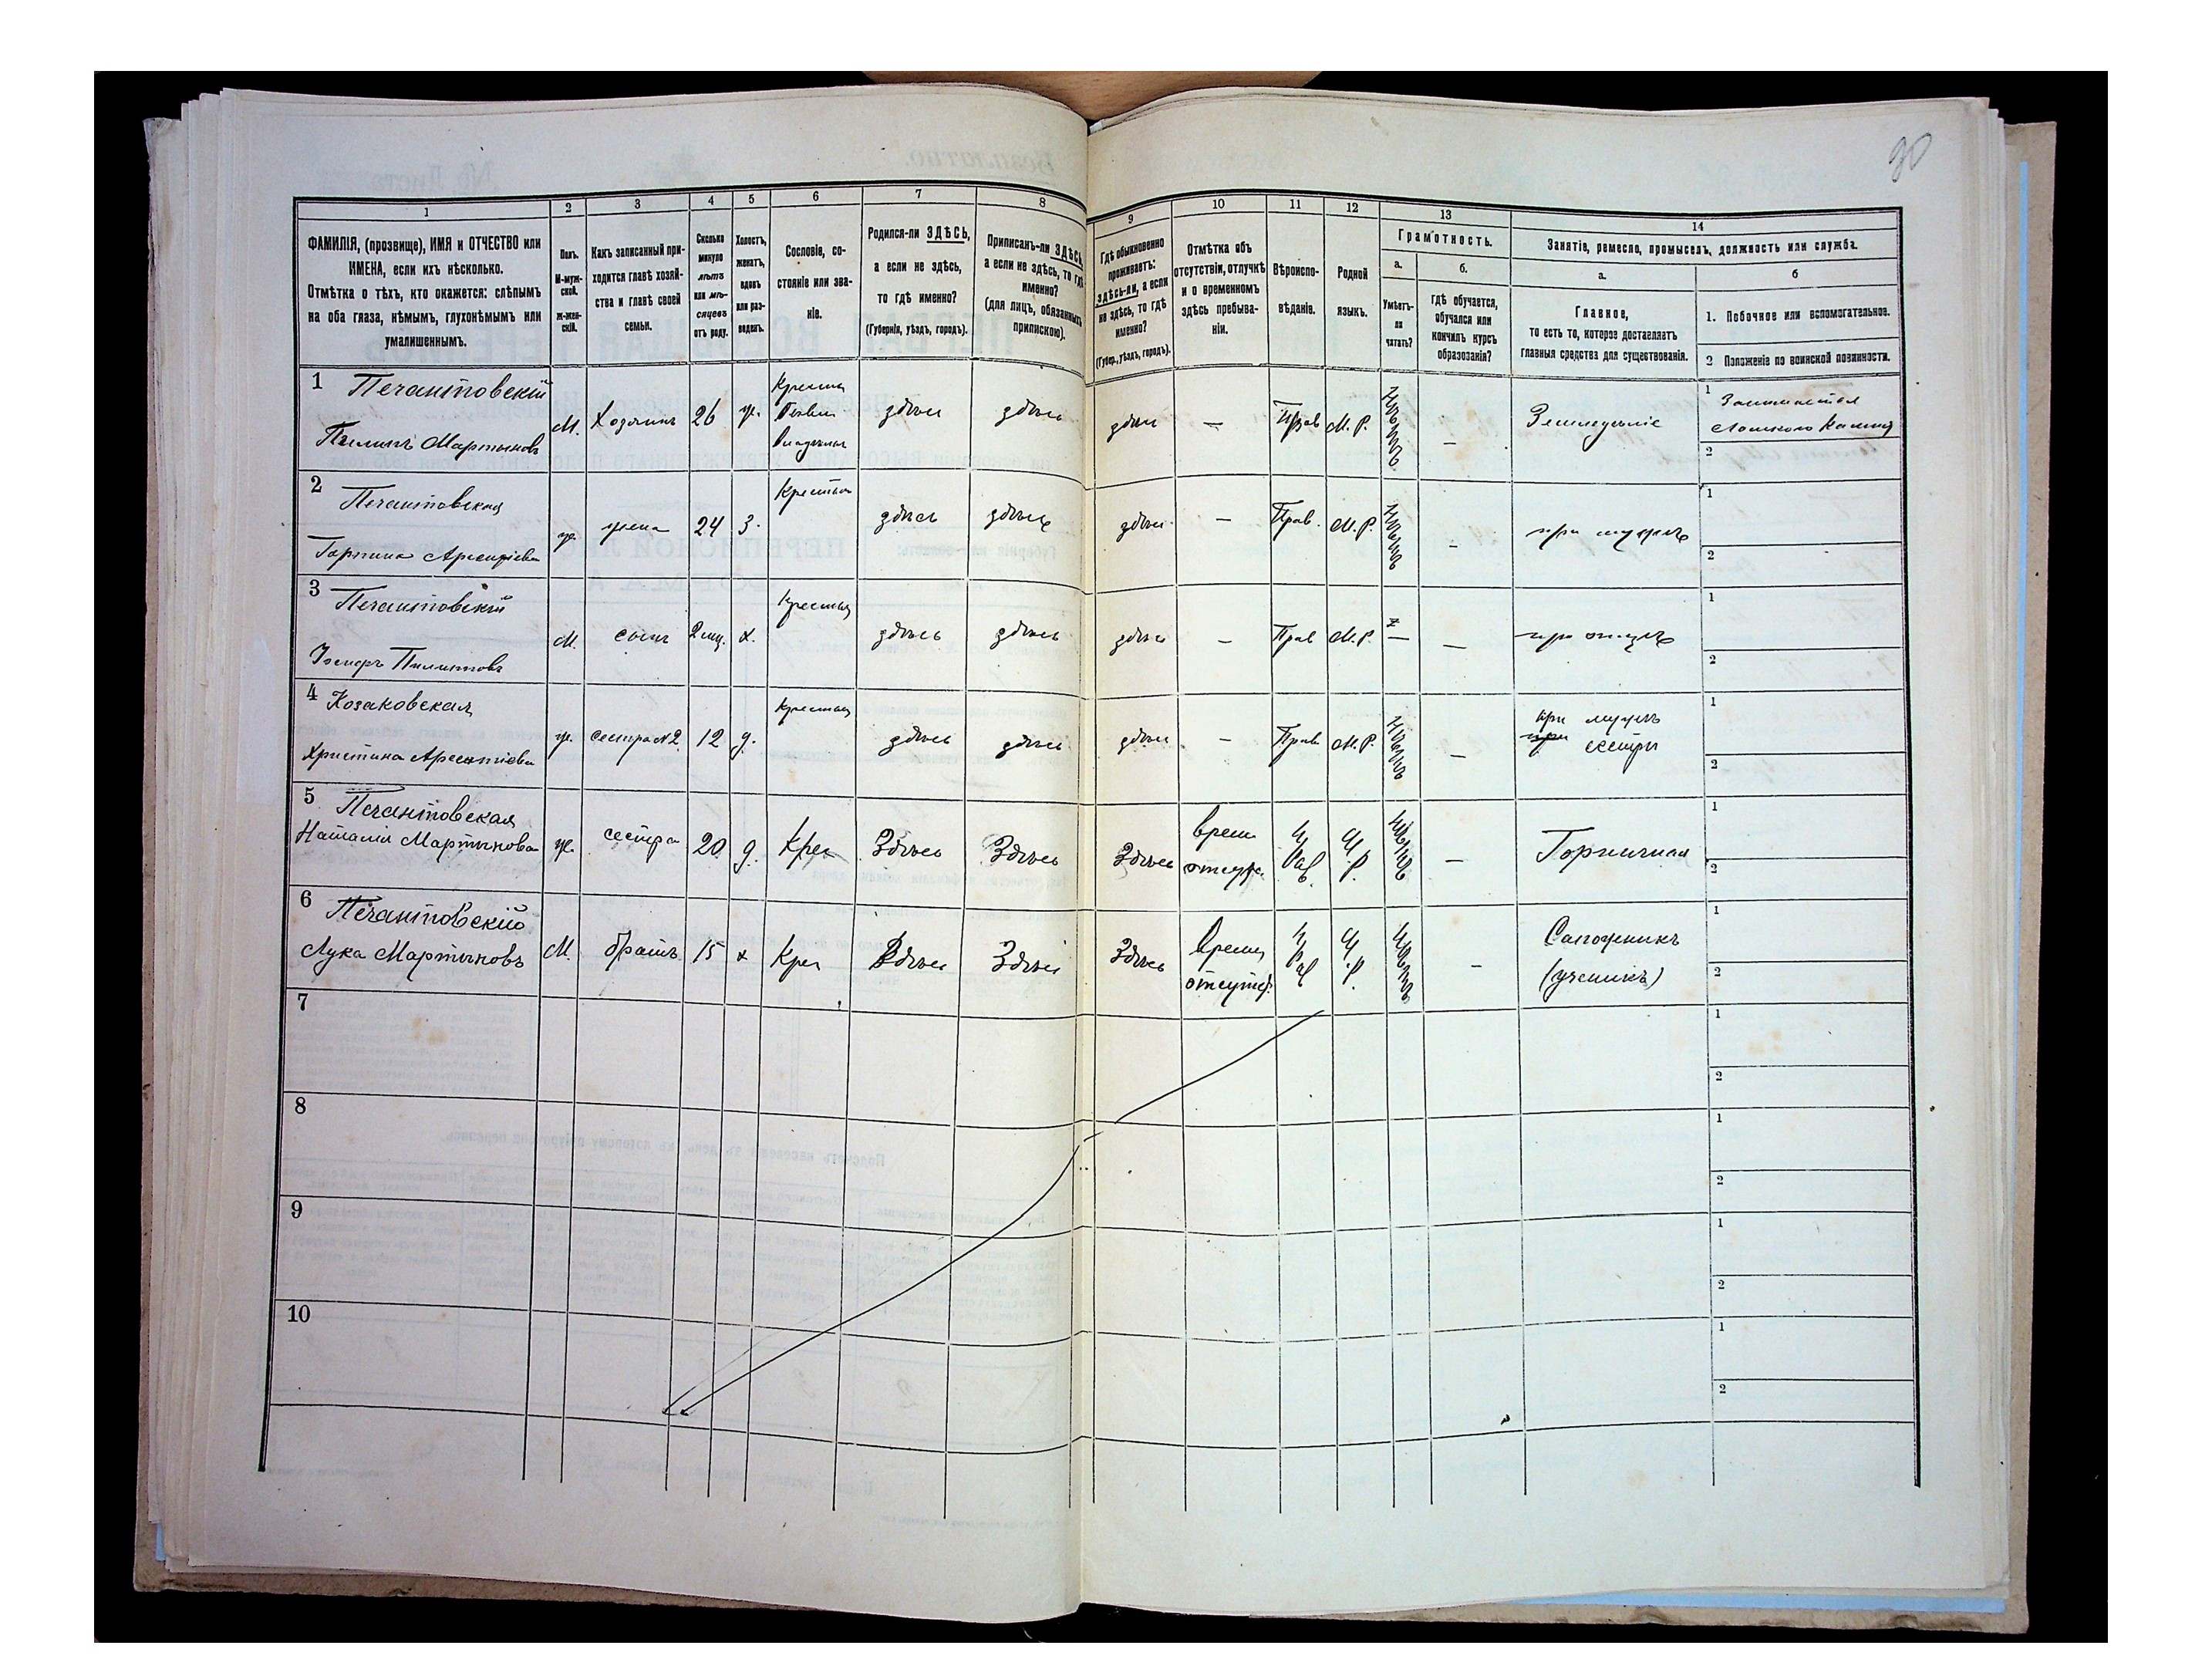 90
1 2 3 4 5 6 7 8 9 10 11 12 13 14
ФАМИЛІЯ, (прозвище), ИМЯ и ОТЧЕСТВО или
ИМЕНА, если ихъ нѣсколько.
Отмѣтка о тѣхъ, кто окажется: слѣпымъ
на оба глаза, нѣмымъ, глухонѣмымъ или
умалишеннымъ.
Полъ.
М-муж-
ской.
Ж-жен-
скій.
Какъ записанный при-
ходится главѣ хозяй-
ства и главѣ своей
семьи.
Сколько
минуло
лѣтъ
или мѣ-
сяцевъ
отъ роду.
Холостъ,
женатъ,
вдовъ
или раз-
веденъ.
Сословіе, со-
стояніе или зва-
ніе.
Родился-ли ЗДѢСЬ,
а если не здѣсь,
то гдѣ именно?
(Губернія, уѣздъ, городъ).
Приписанъ-ли ЗДѢСЬ,
а если не здѣсь, то гдѣ
именно?
(для лицъ, обязанныхъ
припискою).
Гдѣ обыкновенно
проживаетъ:
здѣсь-ли, а если
не здѣсь, то гдѣ
именно?
(Губер., уѣздъ, городъ).
Отмѣтка объ
отсутствіи, отлучкѣ
и о временномъ
здѣсь пребыва-
ніи.
Вѣроиспо-
вѣданіе.
Родной
языкъ.
Грамотность.
а.
Умѣетъ-
ли
читать?
б.
Гдѣ обучается,
обучался или
кончилъ курсъ
образованія?
Занятіе, ремесло, промыселъ, должность или служба.
а.
Главное,
то есть то, которое доставляетъ
главныя средства для существованія.
б
1. Побочное или вспомогательное.
2 Положеніе по воинской повинности.
1 Печантовскій
Пилипъ Мартыновъ
М. Хозяинъ 26 ж. здѣсь здѣсь здѣсь — Прав М. Р. — Земледѣліе
1
2
2 Печантовская
Горпина Арсентіева
ж. жена 24 з. Крестьян здѣсь здѣсь здѣсь — Прав. М. Р. — при мужѣ
1
2
3 Печантовскій
Іосифъ Пилиповъ
М. сынъ 2 мц. х. Крестьян здѣсь здѣсь здѣсь — Прав М. Р. — — при отцѣ
1
2
4 Козаковская
Христина Арсентіева
ж. сестра №2 12 д. Крестьян здѣсь здѣсь здѣсь — Прав М. Р. —
при мужѣ
при сестры
1
2
5 Печантовская
Наталія Мартынова
ж. сестра 20 д. Крес Здѣсь Здѣсь Здѣсь
врем
отсутс.
— Горничная
1
2
6 Печантовскій
Лука Мартыновъ
М. братъ 15 х Крес Здѣсь Здѣсь Здѣсь
времен
отсутс.
—
Сапожникъ
(ученикъ)
1
2
7
1
2
8
1
2
9
1
2
10
1
2